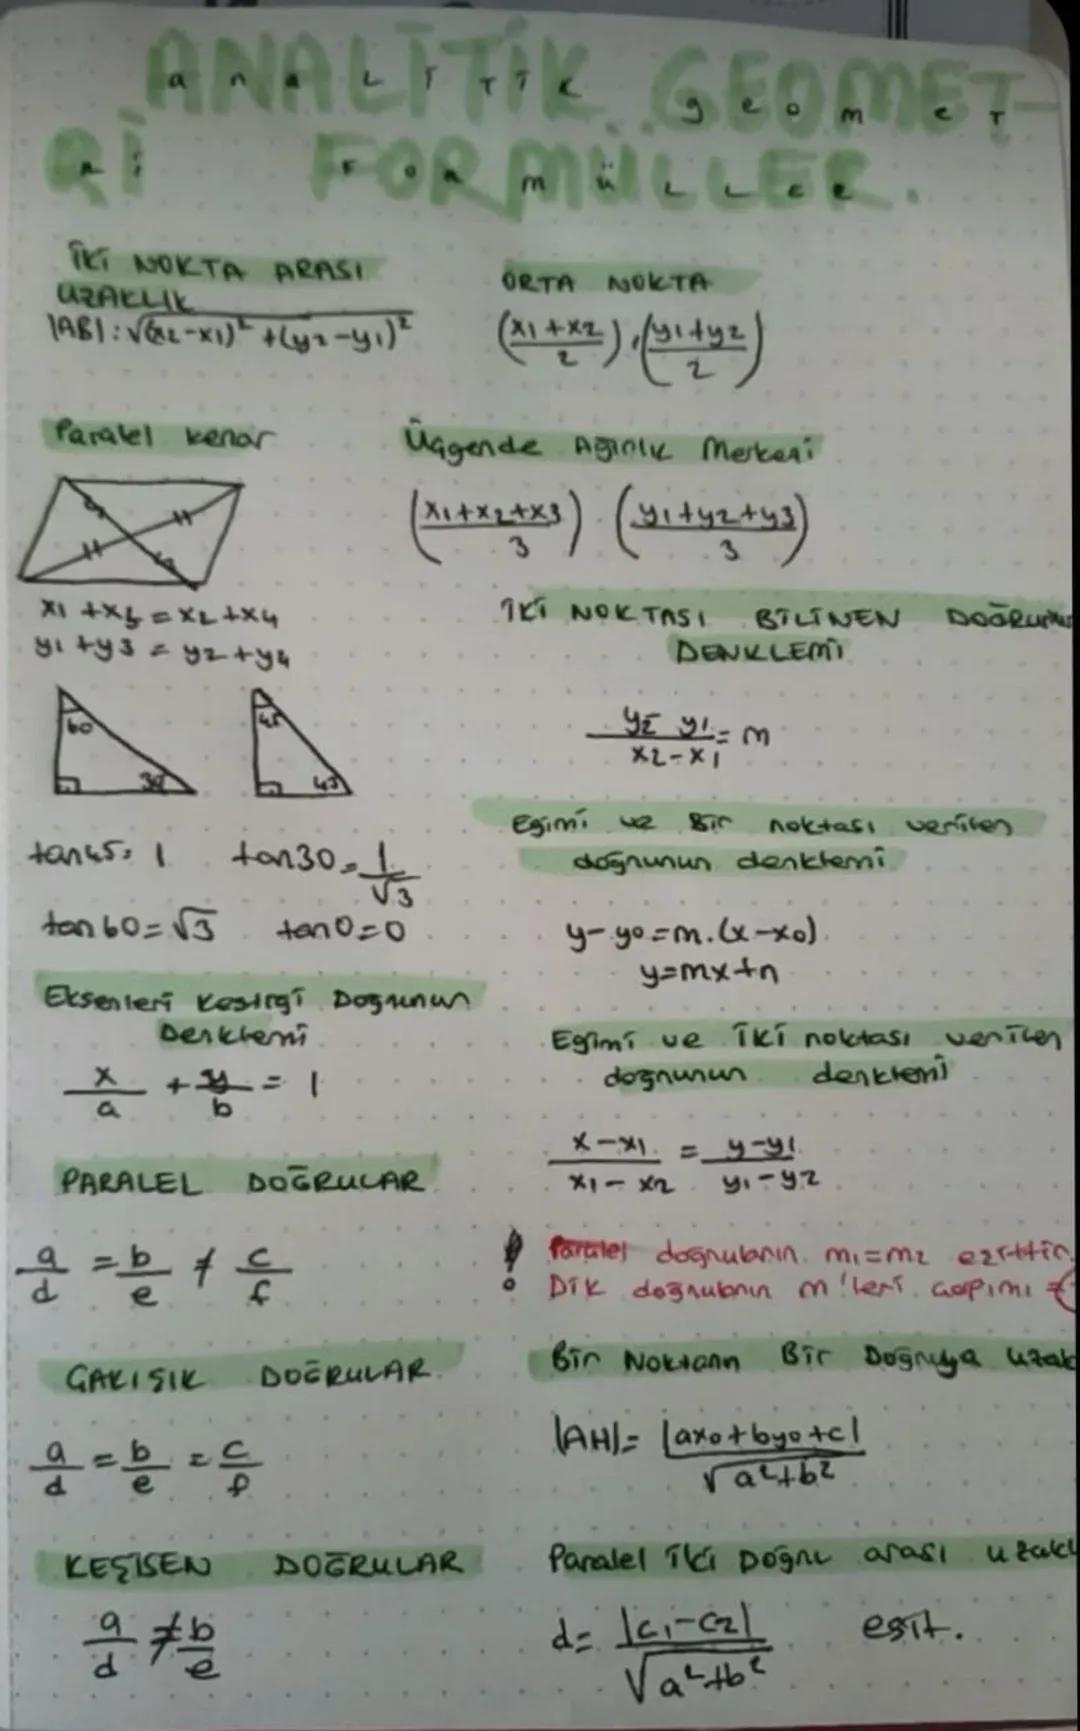 ANALİTİK GEOMET-
Rİ FORMÜLLER.
İKİ NOKTA ARASI
UZAKLIK
|AB|: √(x2-x1)² + (y2-y1)²
ORTA NOKTA
(x1+x2/2), (y1+y2/2)
Paralel kenar
x1 + x3 = x2 + x4
y1 + y3 = y2 + y4
Üçgende Ağırlık Merkezi
(x1+x2+x3/3) (y1+y2+y3/3)
İKİ NOKTASI BİLİNEN
DENKLEMİ
y2 y1/x2-x1 = m
60 30 45 45
tan45= 1 tan30= 1/√3
tan60=√3 tan0=0
Eğimi ve Bir noktası verilen
doğrunun denklemi
y-y0=m.(x-x0)
y=mx+n
Eksenleri Kestiği Doğrunun
Denklemi
x/a + y/b = 1
Eğimi ve İki noktası verilen
doğrunun denklemi
x-x1/x1-x2 = y-y1/y1-y2
PARALEL DOĞRULAR
a/d = b/e ≠ c/f
! Paralel doğruların m1=m2 eşittir.
Dik doğruların m'leri çarpımı
ÇAKIŞIK DOĞRULAR
a/d = b/e = c/f
Bir Noktanın Bir Doğruya uzak
|AH|= |ax0+by0+c|/√a²+b²
KEŞİSEN DOĞRULAR
a/d ≠ b/e
Paralel İki Doğru arası uzakl
d= |c1-c2|/√a²+b² eşit.